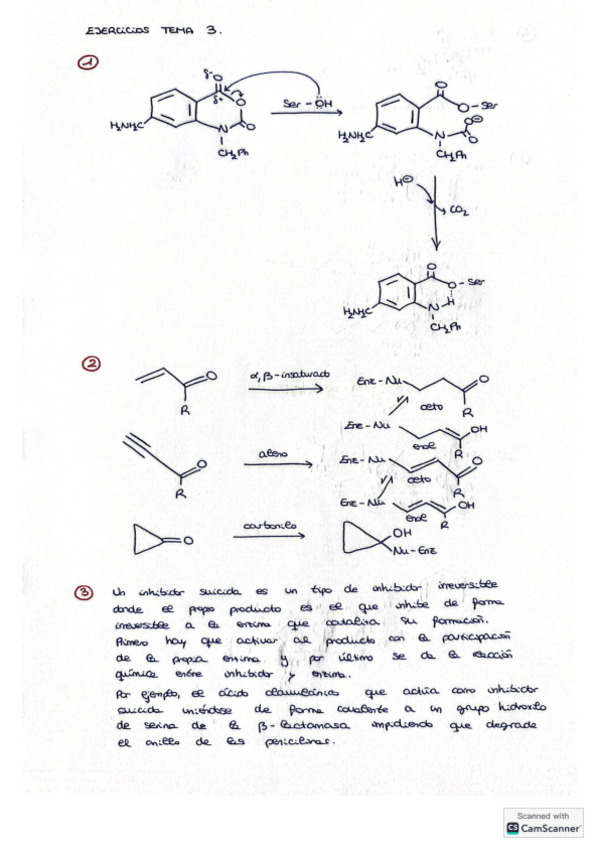 EJERCICIOS TEMA 3.
1
δ- O
δ+
O
H₂NH₂C
N
O
CH₂Ph
Ser-ÖH
O
O-Ser
O⊖
H₂NH₂C
N
O
CH₂Ph
H⊕
CO₂
O
O-Ser
H₂NH₂C
N
H
CH₂Ph
2
O
R
α,β-insaturado
Enz-Nu
O
ceto
R
Enz-Nu
OH
enol
R
O
R
aleno
Enz-Nu
O
ceto
R
Enz-Nu
OH
enol
R
O
carbonilo
OH
Nu-Enz
3
Un inhibidor suicida es un tipo de inhibidor irreversible
donde el propio producto es el que inhibe de forma
irreversible a la enzima que cataliza su formación.
Primero hay que activar al producto con la participación
de la propia enzima y por último se da la reacción
química entre inhibidor y enzima.
Por ejemplo, el ácido clavulánico que actúa como inhibidor
suicida uniéndose de forma covalente a un grupo hidroxilo
de serina de la β-lactamasa impidiendo que degrade
el anillo de las penicilinas.
Scanned with
CS CamScanner